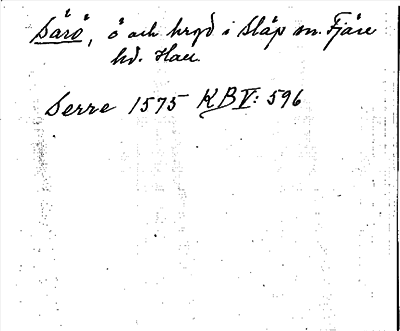 Särö, ö och hrgd i Släp sn. Fjäre
hd. Hall.
Serre 1575 KB V: 596